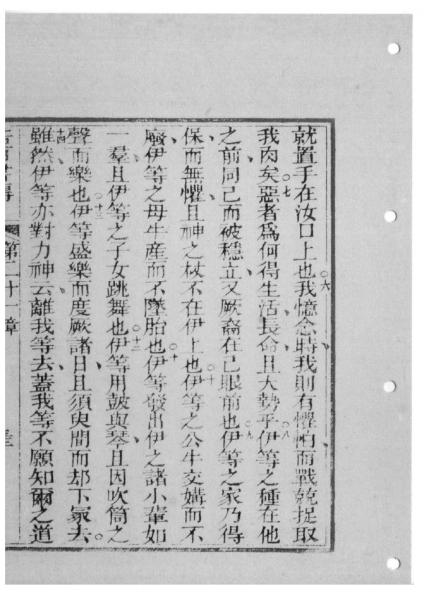 就置手在汝口上也○六我憶念時我則有懼怕而戰兢捉取
我肉矣○七惡者為何得生活長命且大勢乎○八伊等之種在他
之前同己而被穩立又厥裔在己眼前也○九伊等之家乃得
保而無懼且神之杖不在伊上也○十伊等之公牛交媾而不
廢伊等之母牛產而不墜胎也○十一伊等發出伊之諸小輩如
一羣且伊等之子女跳舞也○十二伊等用鼓與琴且因吹筒之
聲而樂也○十三伊等盛樂而度厥諸日且須臾間而却下冢去○
十四雖然伊等亦對力神云離我等去蓋我等不願知爾之道
第二十一章